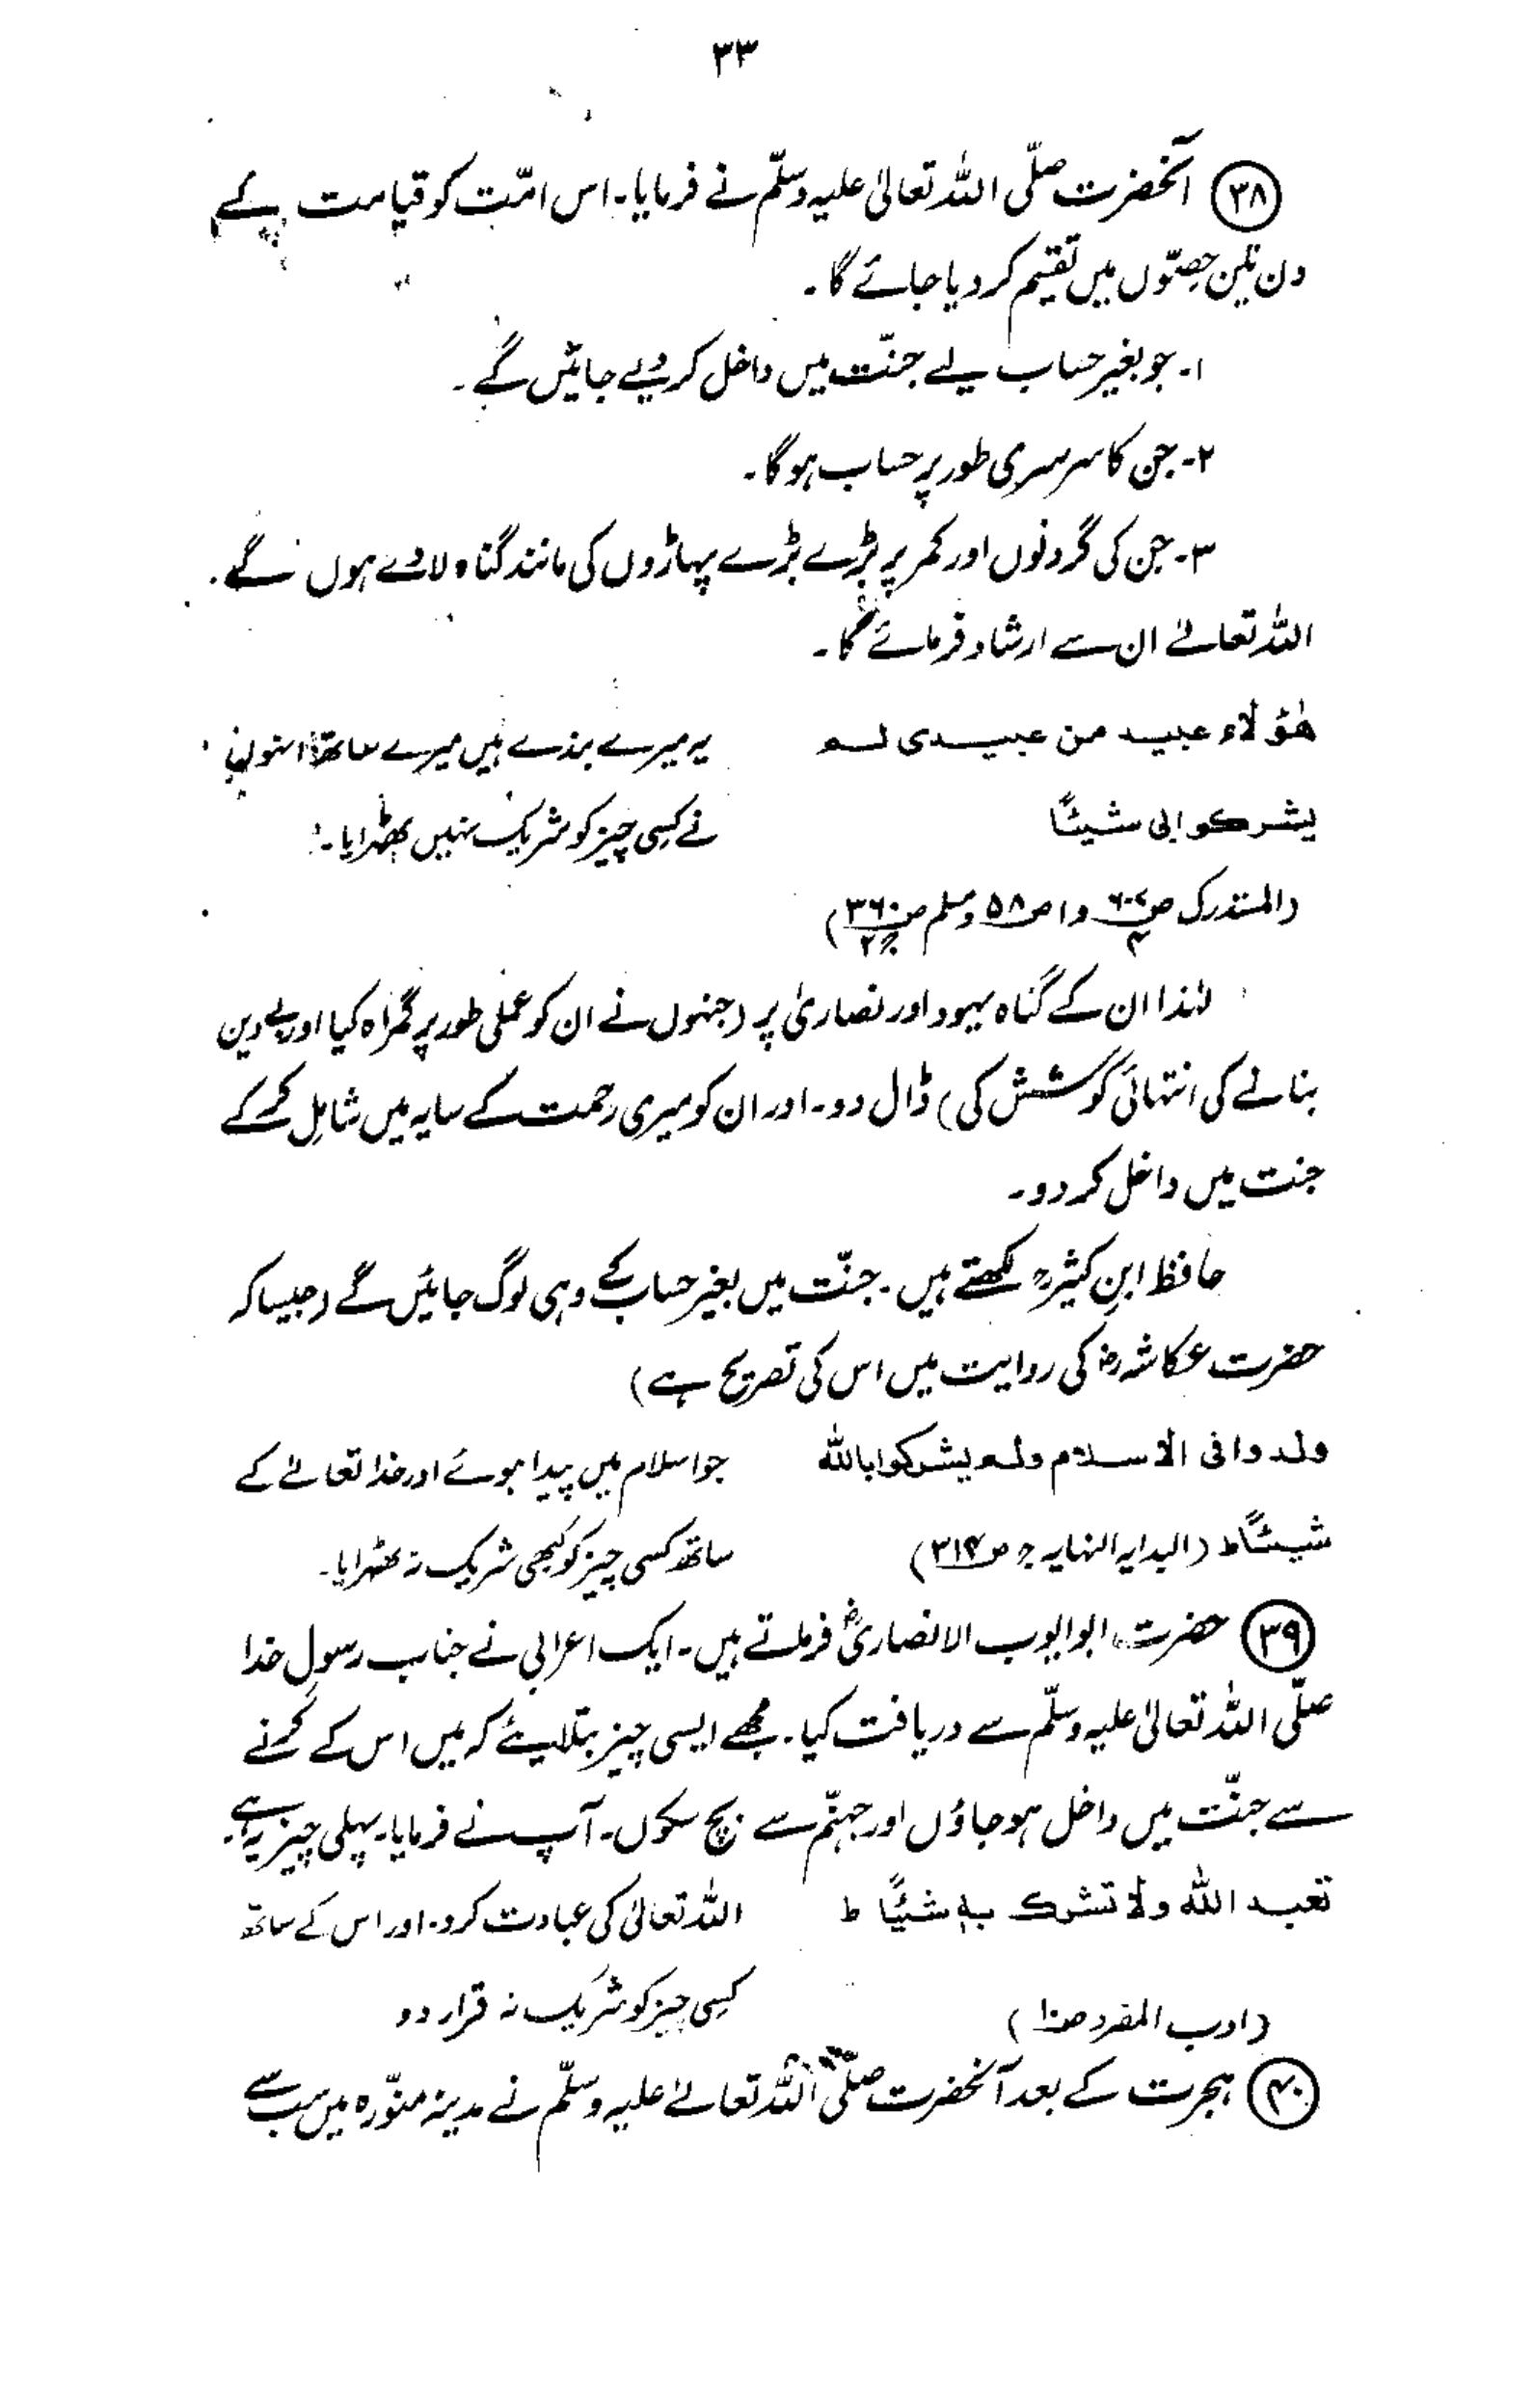 ۳۳
۳۸ آنحضرت صلّی اللہ تعالیٰ علیہ وسلّم نے فرمایا۔ اس امّت کو قیامت کے
دن تین حصّوں میں تقسیم کر دیا جائے گا۔
۱۔ جو بغیر حساب لیے جنّت میں داخل کر دیے جائیں گے۔
۲۔ جن کا سرسری طور پر حساب ہوگا۔
۳۔ جن کی گردنوں اور کمر پر بڑے بڑے پہاڑوں کی مانند گناہ لادے ہوں گے۔
اللہ تعالےٰ ان سے ارشاد فرمائے گا۔
هٰؤلاء عبيد من عبيدى لم یہ میرے بندے ہیں میرے ساتھ انہوں
يشركوا بى شيئًا نے کسی چیز کو شریک نہیں ٹھہرایا۔
(المستدرک ص و ۱ ص ۵۸ و مسلم ص ۳۶۰ ج ۲)
لہٰذا ان کے گناہ یہود اور نصاریٰ پر (جنہوں نے ان کو عملی طور پر گمراہ کیا اور بے دین
بنانے کی انتہائی کوشش کی) ڈال دو۔ اور ان کو میری رحمت کے سایہ میں شامل کر کے
جنت میں داخل کر دو۔
حافظ ابنِ کثیرؒ لکھتے ہیں۔ جنّت میں بغیر حساب کے وہی لوگ جائیں گے (جیسا کہ
حضرت عکاشہؓ کی روایت میں اس کی تصریح ہے)
ولدوا فى الاسلام ولم يشركوا بالله جو اسلام میں پیدا ہوئے اور خدا تعالےٰ کے
شيئًا ط (البدایہ النہایہ ج ص ۳۱۴) ساتھ کسی چیز کو کبھی شریک نہ ٹھہرایا۔
۳۹ حضرت ابو ایوب الانصاریؓ فرماتے ہیں۔ ایک اعرابی نے جناب رسولِ خدا
صلّی اللہ تعالیٰ علیہ وسلّم سے دریافت کیا۔ مجھے ایسی چیز بتلایئے کہ میں اس کے کرنے
سے جنّت میں داخل ہو جاؤں اور جہنّم سے بچ سکوں۔ آپ نے فرمایا۔ پہلی چیز یہ ہے۔
تعبد الله ولا تشرك به شيئًا ط اللہ تعالیٰ کی عبادت کرو۔ اور اس کے ساتھ
(ادب المفرد ص ۱۰) کسی چیز کو شریک نہ قرار دو
۴۰ ہجرت کے بعد آنحضرت صلّی اللہ تعالےٰ علیہ وسلّم نے مدینہ منوّرہ میں سب سے